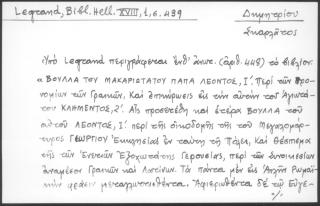 Legrand, Bibl. Hell. XVIII, 1, σ. 439
Δημητρίου
Σκαρλᾶτος
Ὑπὸ Legrand περιγράφεται ὑπ' ἀριθ. (ἀριθ. 448) τὸ βιβλίον:
« ΒΟΥΛΛΑ ΤΟΥ ΜΑΚΑΡΙΩΤΑΤΟΥ ΠΑΠΑ ΛΕΟΝΤΟΣ, Ι΄. Περὶ τῶν προ-
νομίων τῶν Γραικῶν. Καὶ ἐπικύρωσις εἰς τὴν αὐτὴν τοῦ Ἁγιωτά-
του ΚΛΗΜΕΝΤΟΣ, Ζ΄. Εἰς προσετέθη καὶ ἑτέρα ΒΟΥΛΛΑ τοῦ
αὐτοῦ ΛΕΟΝΤΟΣ, Ι΄. περὶ τῆς οἰκοδομῆς τῆς τοῦ Μεγαλομάρ-
τυρος ΓΕΩΡΓΙΟΥ Ἐκκλησίας ἐν ταύτῃ τῇ Πόλει, Καὶ Θέσπισμα
τῆς τῶν Ἑνετῶν Ἐξοχωτάτης Γερουσίας, περὶ τῶν συνοικεσίων
ἀναμέσον Γραικῶν καὶ Λατίνων. Τὰ πάντα μὲν εἰς Ἁπλῆν Ῥωμαϊ-
κὴν φράσιν μεταγλωττισθέντα. Ἀφιερωθέντα δὲ τῷ Εὐγε-
%